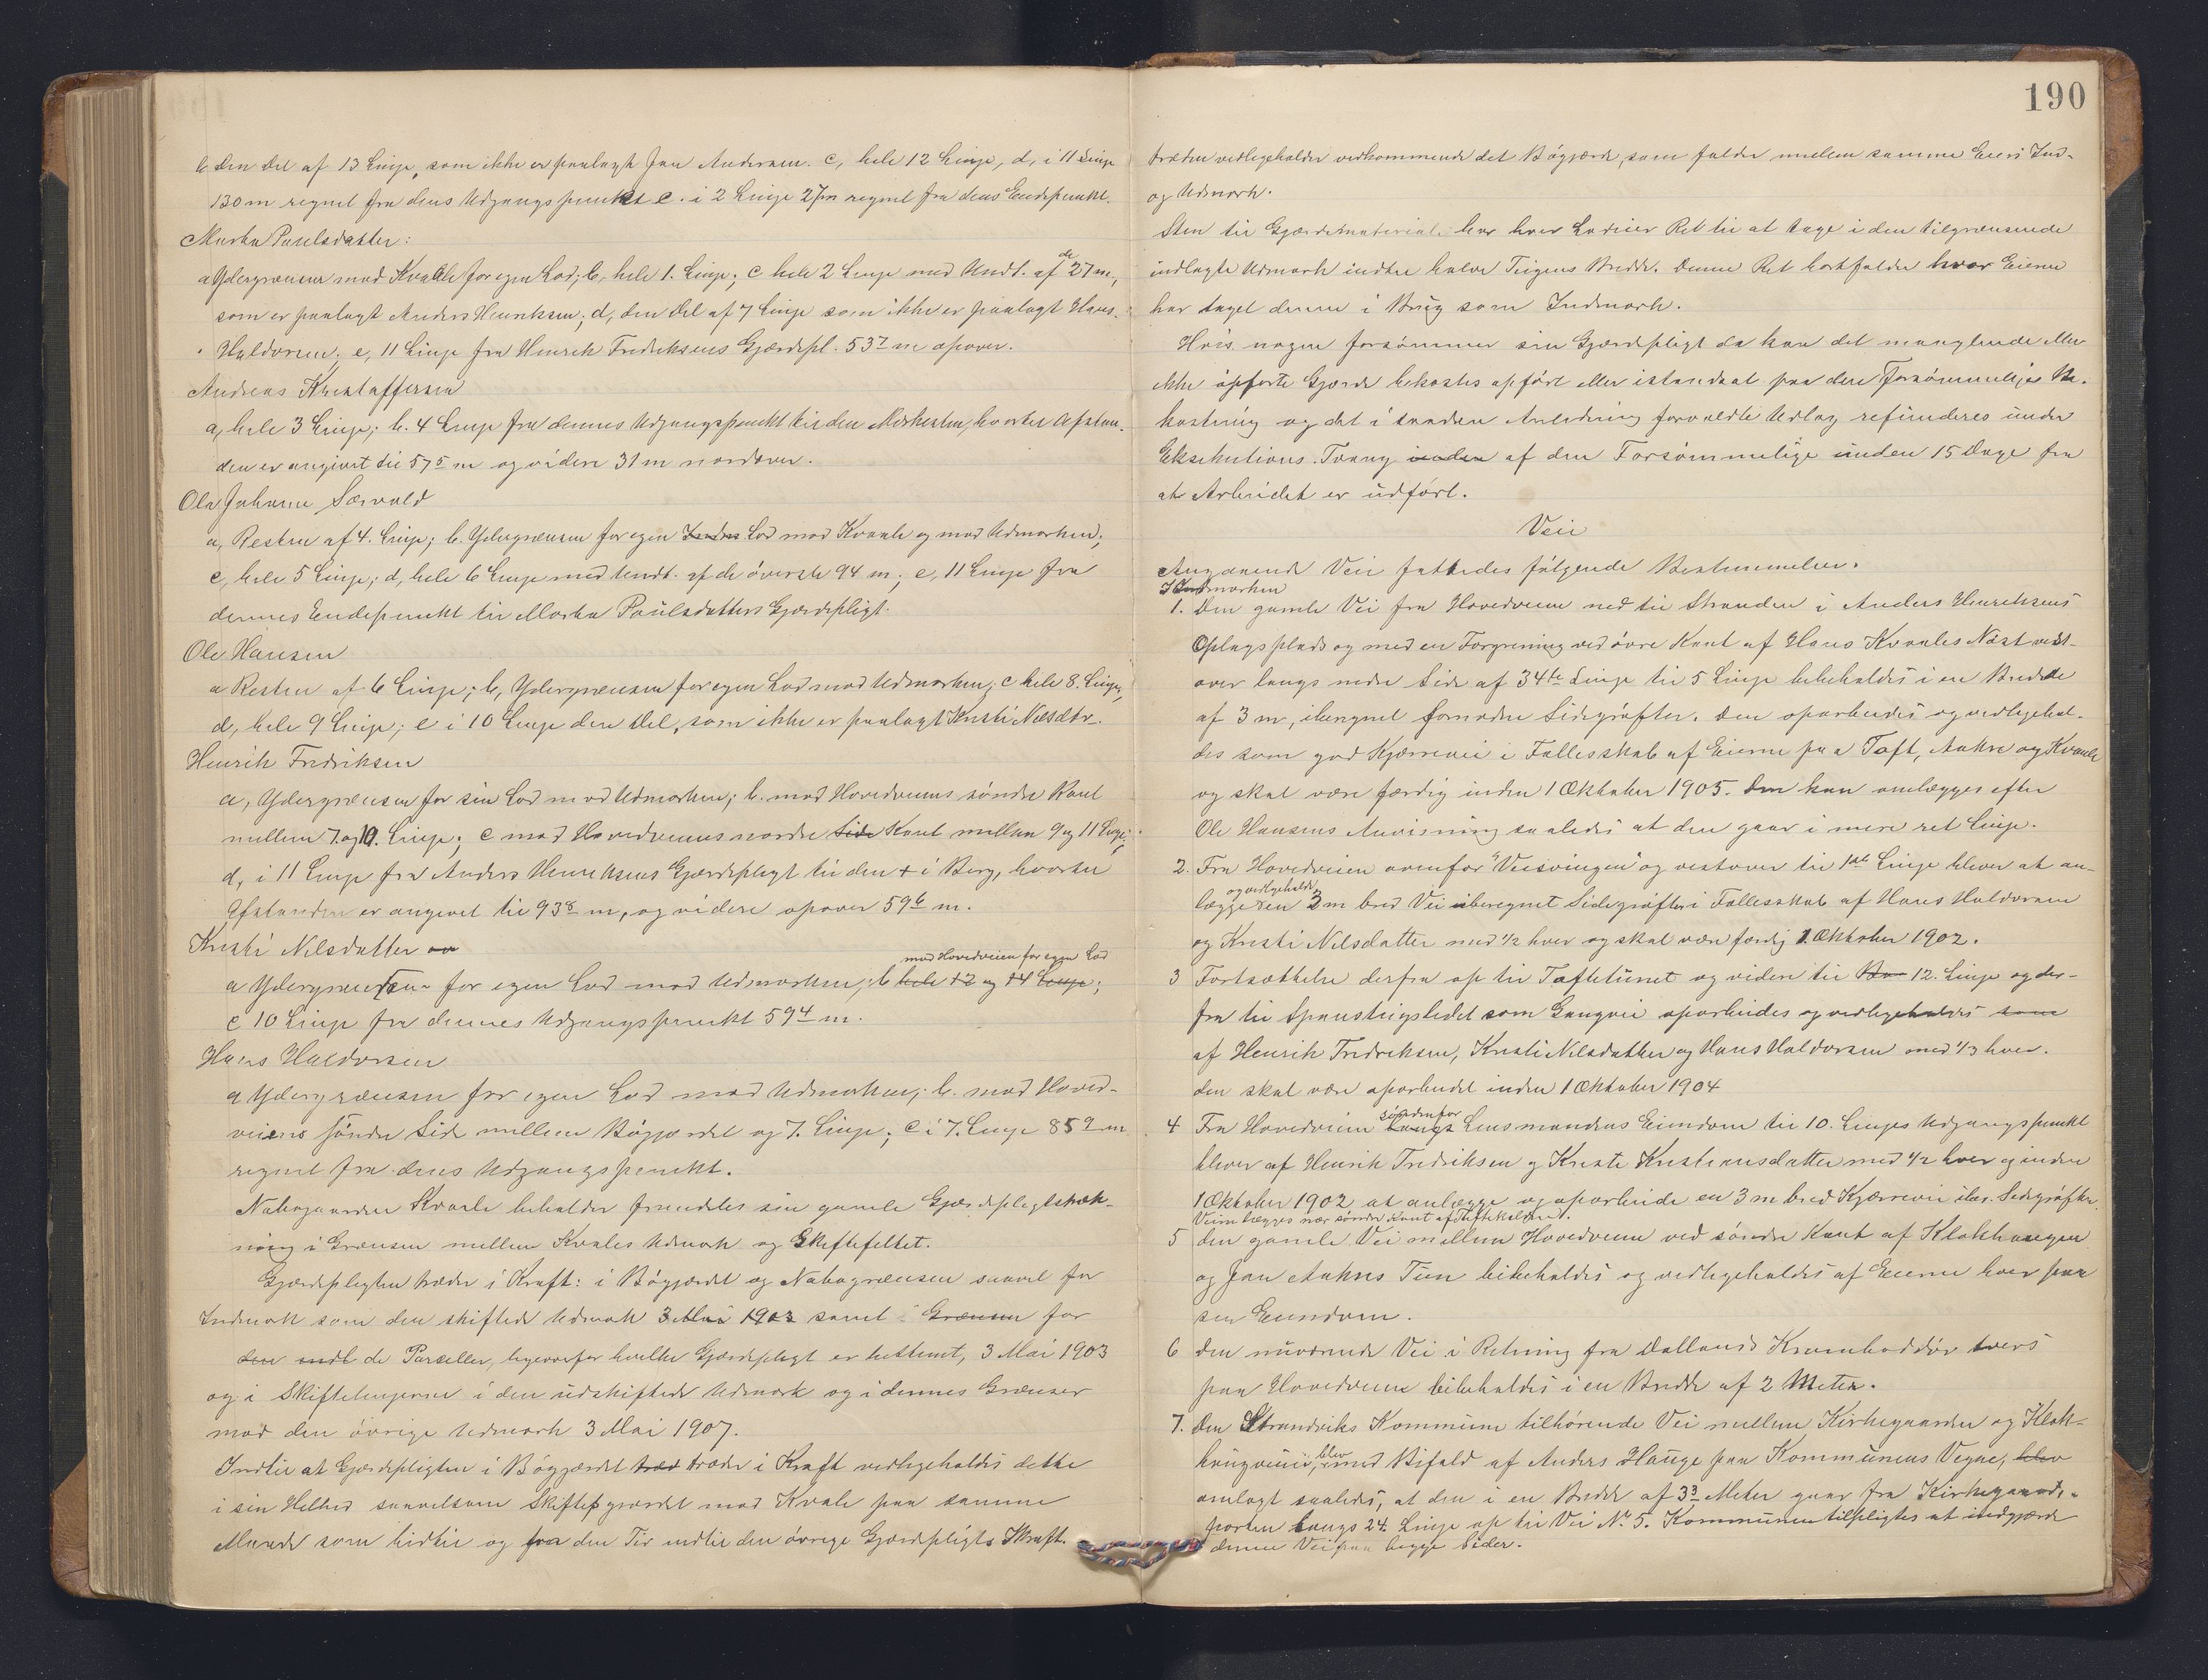 b Den Del af 13 Linje, som ikke er paalagt Jan Andersen. c, hele 12 Linje, d, i 11 Linje
130 m regnet fra dens Udgangspunkt e. i 2 Linje 27 m regnet fra dens Endepunkt.
Marta Paulsdatter:
a Ydergrænsen mod Kvaale for egen Lod; b, hele 1. Linje; c hele 2 Linje med Undt. af de 27 m,
som er paalagt Anders Henriksen; d, den Del af 7 Linje som ikke er paalagt Hans
Haldorsen; e, 11 Linje fra Henrik Fredriksens Gjærdepl. 53⁷ m opover.
Andreas Kristoffersen
a, hele 3 Linje; b. 4 Linje fra dennes Udgangspunkt til den Merkesten, hvortil Afstan-
den er angivet til 57⁵ m og videre 31 m nordover.
Ole Johannes Sævold
a, Resten af 4. Linje; b. Ydergrænsen for egen Lod mod Kvaale og mod Udmarken;
c, hele 5 Linje; d, hele 6 Linje med Undt. af de øverste 94 m; e, 11 Linje fra
dennes Endepunkt til Marta Paulsdatters Gjærdepligt.
Ole Hansen
a Resten af 6 Linje; b, Ydergrænsen for egen Lod mod Udmarken; c hele 8. Linje,
d, hele 9 Linje; e i 10 Linje den Del, som ikke er paalagt Kristi Nilsdtr.
Henrik Fredriksen
a, Ydergrænsen for sin Lod mod Udmarken; b. mod Hovedveiens søndre Kant
mellem 7. og 10. Linje; c mod Hovedveiens nordre Side Kant mellem 9 og 11 Linje;
d, i 11 Linje fra Anders Henriksens Gjærdepligt til den + i Berg, hvortil
Afstanden er angivet til 93⁸ m, og videre opover 59⁶ m.
Kristi Nilsdatter
mod Hovedveien for egen Lod
a Ydergrænsen for egen Lod mod Udmarken; b hele 12 og 14 Linje;
c 10 Linje fra dennes Udgangspunkt 59⁴ m.
Hans Haldorsen
a Ydergrænsen for egen Lod mod Udmarken; b. mod Hoved-
veiens søndre Side mellem Bøgjærdet og 7. Linje; c i 7. Linje 85⁹ m
regnet fra dens Udgangspunkt.
Nabogaarden Kvaale beholder fremdeles sin gamle Gjærdepligtstræk-
ning i Grænsen mellem Kvales Udmark og Skiftefeltet.
Gjærdepligten træder i Kraft: i Bøgjærdet og Nabogrænsen saavel for
Indmark som den skiftede Udmark 3 Mai 1903 samt i Grænsen for
den indt de Parceller, ligeoverfor hvilke Gjærdepligt er bestemt, 3 Mai 1903
og i Skiftelinjerne i den udskiftede Udmark og i dennes Grænser
mod den øvrige Udmark 3 Mai 1907.
Indtil at Gjærdepligten i Bøgjærdet træd træder i Kraft vedligeholdes dette
i sin Helhed saavelsom Skiftesgjærdet mod Kvale paa samme
Maade som hidtil og fra den Tid indtil den øvrige Gjærdepligts Ikraft-
190
træden vedligeholdes vedkommende det Bøgjærde, som falder mellem samme Eiers Ind-
og Udmark.
Sten til Gjærdemateriale har hver Lodeier Ret til at tage i den tilgrænsende
indlagte Udmark indtil halve Teigens Bredde. Denne Ret bortfalder hvor Eieren
har taget denne i Brug som Indmark.
Hvis nogen forsømmer sin Gjærdepligt da kan det manglende eller
ikke opførte Gjærde bekostes opført eller istandsat paa den Forsømmeliges Be-
kostning og det i saadan Anledning forvoldte Udlæg refunderes under
Eksekutions-Tvang inden af den Forsømmelige inden 15 Dage fra
at Arbeidet er udført.
Veie
Angaaende Veie fattedes følgende Bestemmelser.
I Indmarken
1. Den gamle Vei fra Hovedveien ned til Stranden i Anders Henriksens
Oplagsplads og med en Forgrening ved øvre Kant af Hans Kvales Nøst vest-
over langs nedre Side af 34te Linje til 5 Linje bibeholdes i en Bredde
af 3 m, iberegnet fornødne Sidegrøfter. Den oparbeides og vedligehol-
des som god Kjærrevei i Fællesskab af Eierne paa Toft, Aakre og Kvaale
og skal være færdig inden 1 Oktober 1905. Den kan omlægges efter
Ole Hansens Anvisning saaledes at den gaar i mere ret Linje.
2. Fra Hovedveien ovenfor "Veisvingen" og vestover til 1ste Linje bliver at an-
og vedligeholde
lægge en 3 m bred Vei iberegnet Sidegrøfter i Fællesskab af Hans Haldorsen
og Kristi Nilsdatter med 1/2 hver og skal være færdig 1. Oktober 1902.
3 Fortsættelse derfra op til Toftetunet og videre til 12. Linje og der-
fra til Spanstigsledet som Gangvei oparbeides og vedligeholdes som
af Henrik Fredriksen, Kristi Nilsdatter og Hans Haldorsen med 1/3 hver.
den skal være oparbeidet inden 1 Oktober 1904
søndenfor
4 Fra Hovedveien langs Lensmandens Eiendom til 10. Linjes Udgangspunkt
bliver af Henrik Fredriksen og Kriste Kristiansdatter med 1/2 hver og inden
1 Oktober 1902 at anlægge og oparbeide en 3 m bred Kjærrevei iber. Sidegrøfter.
Veien lægges nær søndre Kant af Toftekalden.
5 den gamle Vei mellem Hovedveien ved søndre Kant af Klokhaugen
og Jan Aakres Tun bibeholdes og vedligeholdes af Eierne hver paa
sin Eiendom.
6 den nuværende Vei i Retning fra Dallands Kramboddør tvers
paa Hovedveien bibeholdes i en Bredde af 2 Meter.
7. Den Strandviks Kommune tilhørende Vei mellem Kirkegaarden og Klok-
haugveien, blev med Bifald af Anders Hauge paa Kommunens Vegne, blev
omlagt saaledes, at den i en Bredde af 3³ Meter gaar fra Kirkegaards-
porten langs 24. Linje op til Vei No 5. Kommunen tilpligtes at indgjærde
denne Vei paa begge Sider.